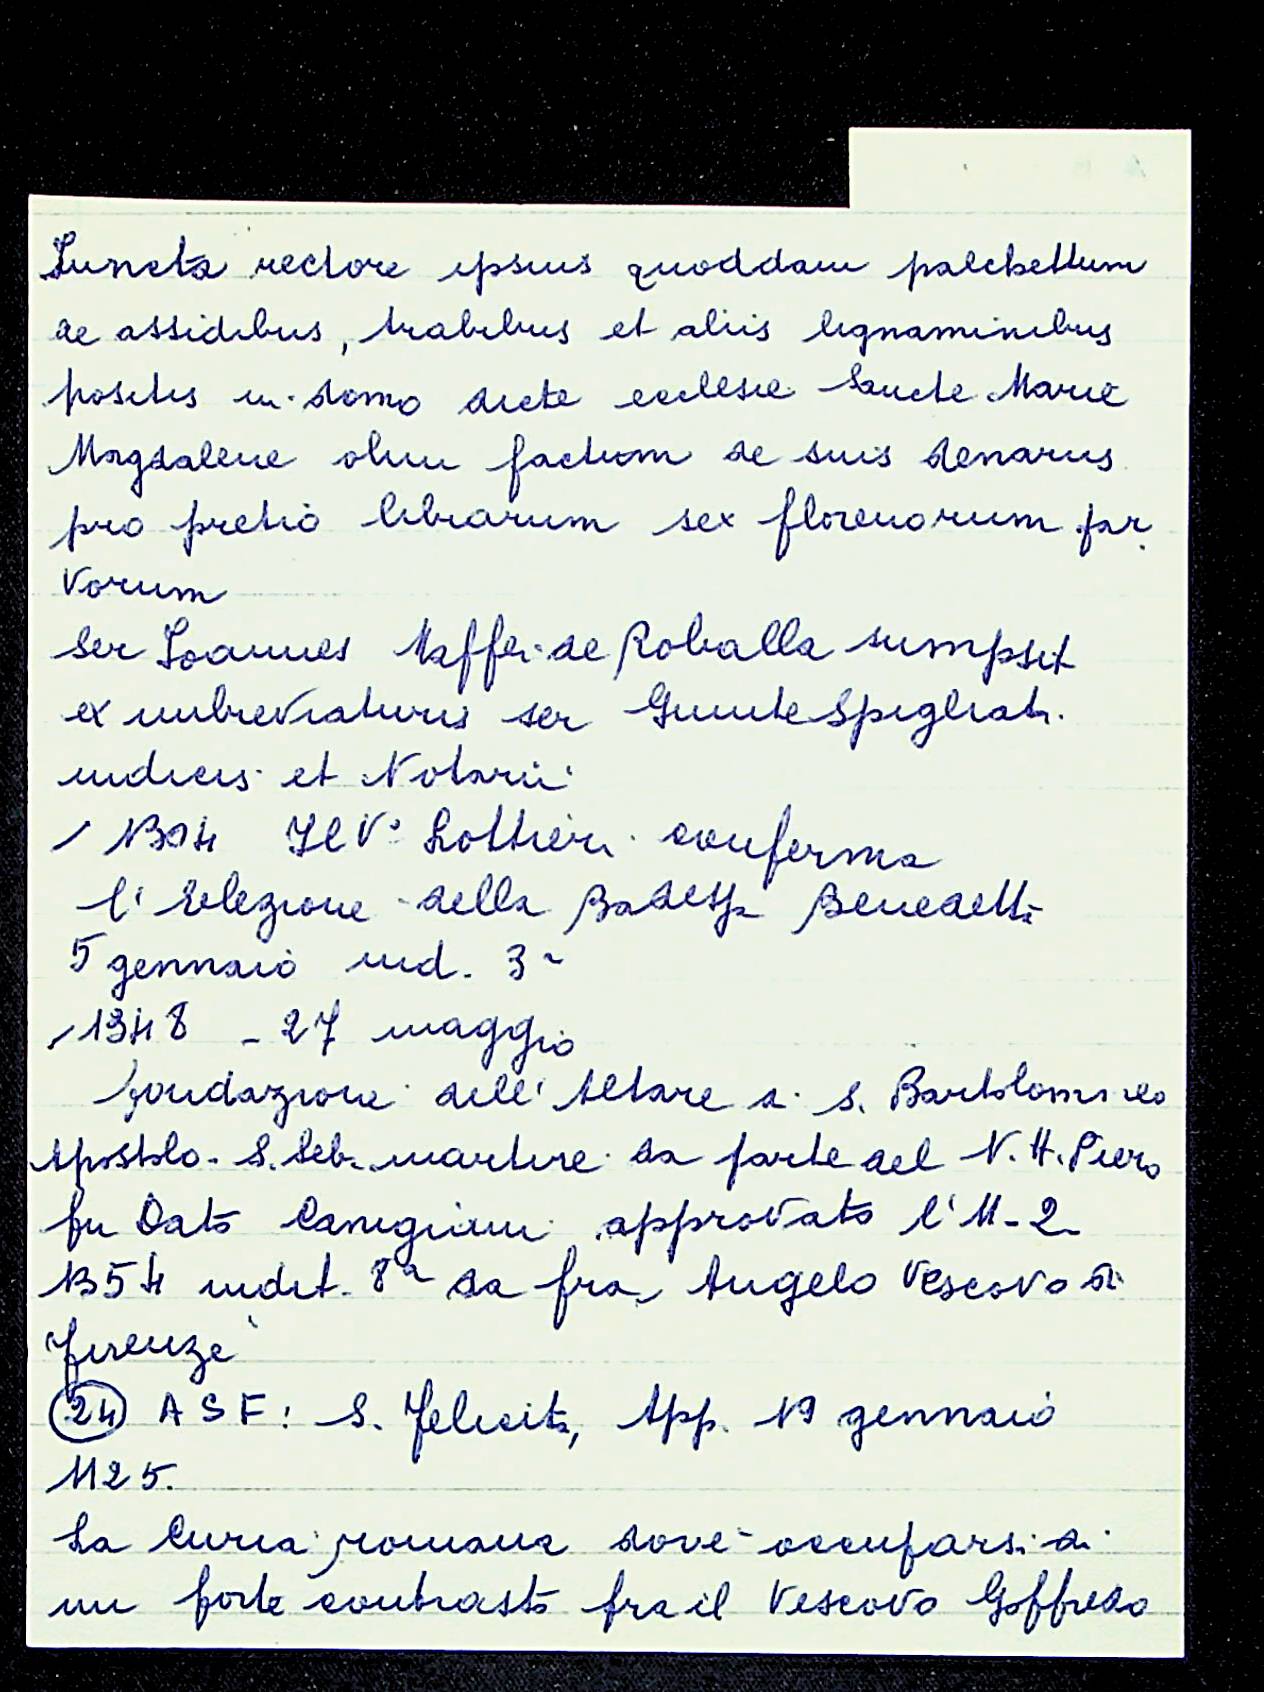 Iuncta rectore ipsius quoddam palchettum
de assidibus, trabibus et aliis lignaminibus
positis in domo dicte ecclesie Sancte Marie
Magdalene olim factum de suis denariis
pro pretio librarum sex florenorum par
vorum
Ser Ioannes Maffei de Roballa sumpsit
ex imbreviaturis ser Giunte Spigliati
iudicis et Notarii
1304 Il Vº Lottieri conferma
l'elezione della Badessa Benedetta
5 gennaio ind. 3ª
1348 - 27 maggio
fondazione dell'Altare a S. Bartolomeo
Apostolo - S. Seb. martire da parte del N.H. Piero
fu Dato Canigiani approvato l'11-2
1354 indit. 8ª da fra Angelo Vescovo di
Firenze
24 ASF: S. Felicita, App. 19 gennaio
1125.
La Curia romana dovè occuparsi di
un forte contrasto fra il Vescovo Goffredo